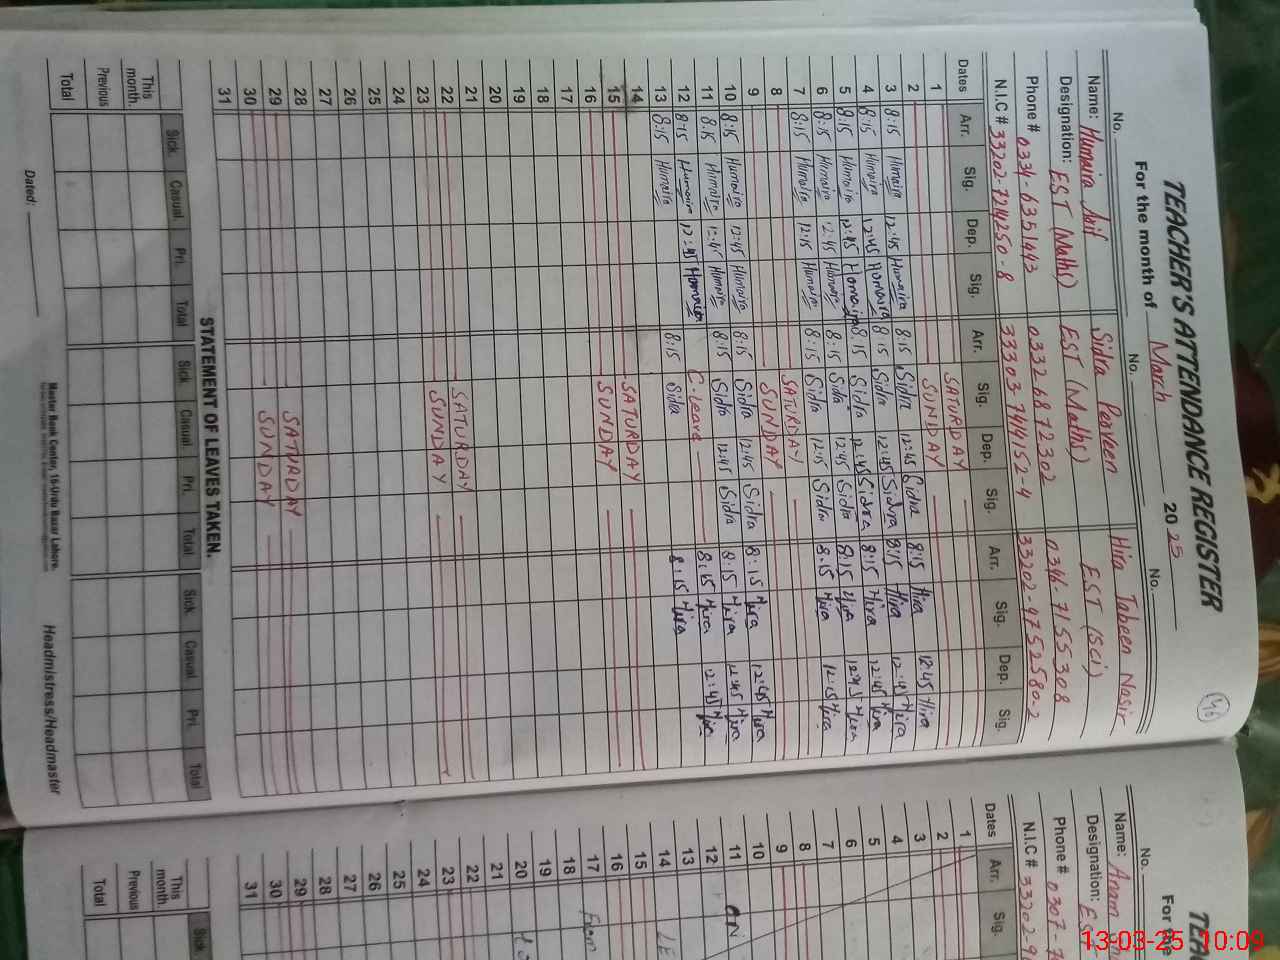 TEACHER'S ATTENDANCE REGISTER
46
For the month of March 2025
No. No. No.
Name: Humaira Asif Sidra Parveen Hira Tabeen Nasir
Designation: EST (Maths) EST (Maths) EST (SCI)
Phone # 0334-6351443 0332 6872302 0346-7155308
N.I.C # 33202-7214250-8 33303-7441452-4 33202-9752580-2
Dates Arr. Sig. Dep. Sig. Arr. Sig. Dep. Sig. Arr. Sig. Dep. Sig.
1 SATURDAY
2 SUNDAY
3 8:15 Humaira 12:45 Humaira 8:15 Sidra 12:45 Sidra 8:15 Hira 12:45 Hira
4 8:15 Humaira 12:45 Humaira 8:15 Sidra 12:45 Sidra 8:15 Hira 12:45 Hira
5 8:15 Humaira 12:45 Humaira 8:15 Sidra 12:45 Sidra 8:15 Hira 12:45 Hira
6 8:15 Humaira 12:45 Humaira 8:15 Sidra 12:45 Sidra 8:15 Hira 12:45 Hira
7 8:15 Humaira 12:15 Humaira 8:15 Sidra 12:15 Sidra 8:15 Hira 12:15 Hira
8 SATURDAY
9 SUNDAY
10 8:15 Humaira 12:45 Humaira 8:15 Sidra 12:45 Sidra 8:15 Hira 12:45 Hira
11 8:15 Humaira 12:45 Humaira 8:15 Sidra 12:45 Sidra 8:15 Hira 12:45 Hira
12 8:15 Humaira 12:45 Humaira C.leave 8:15 Hira 12:45 Hira
13 8:15 Humaira 8:15 Sidra 8:15 Hira
14
15 SATURDAY
16 SUNDAY
17
18
19
20
21
22 SATURDAY
23 SUNDAY
24
25
26
27
28
29 SATURDAY
30 SUNDAY
31
STATEMENT OF LEAVES TAKEN.
Sick. Casual. Pri. Total Sick Casual. Pri. Total Sick. Casual Pri. Total
This month.
Previous
Total
Dated: Master Book Center, 16-Urdu Bazar Lahore. Headmistress/Headmaster
TEAC
For the
No.
Name: Anam
Designation: ES
Phone # 0307-7
N.I.C # 33202 9
Dates Arr. Sig.
1
2
3
4
5
6
7
8
9
10
11 ON
12
13
14 LE
15
16
17 From
18
19
20 to
21
22
23
24
25
26
27
28
29
30
31
Sick.
This month.
Previous
Total
13-03-25 10:09